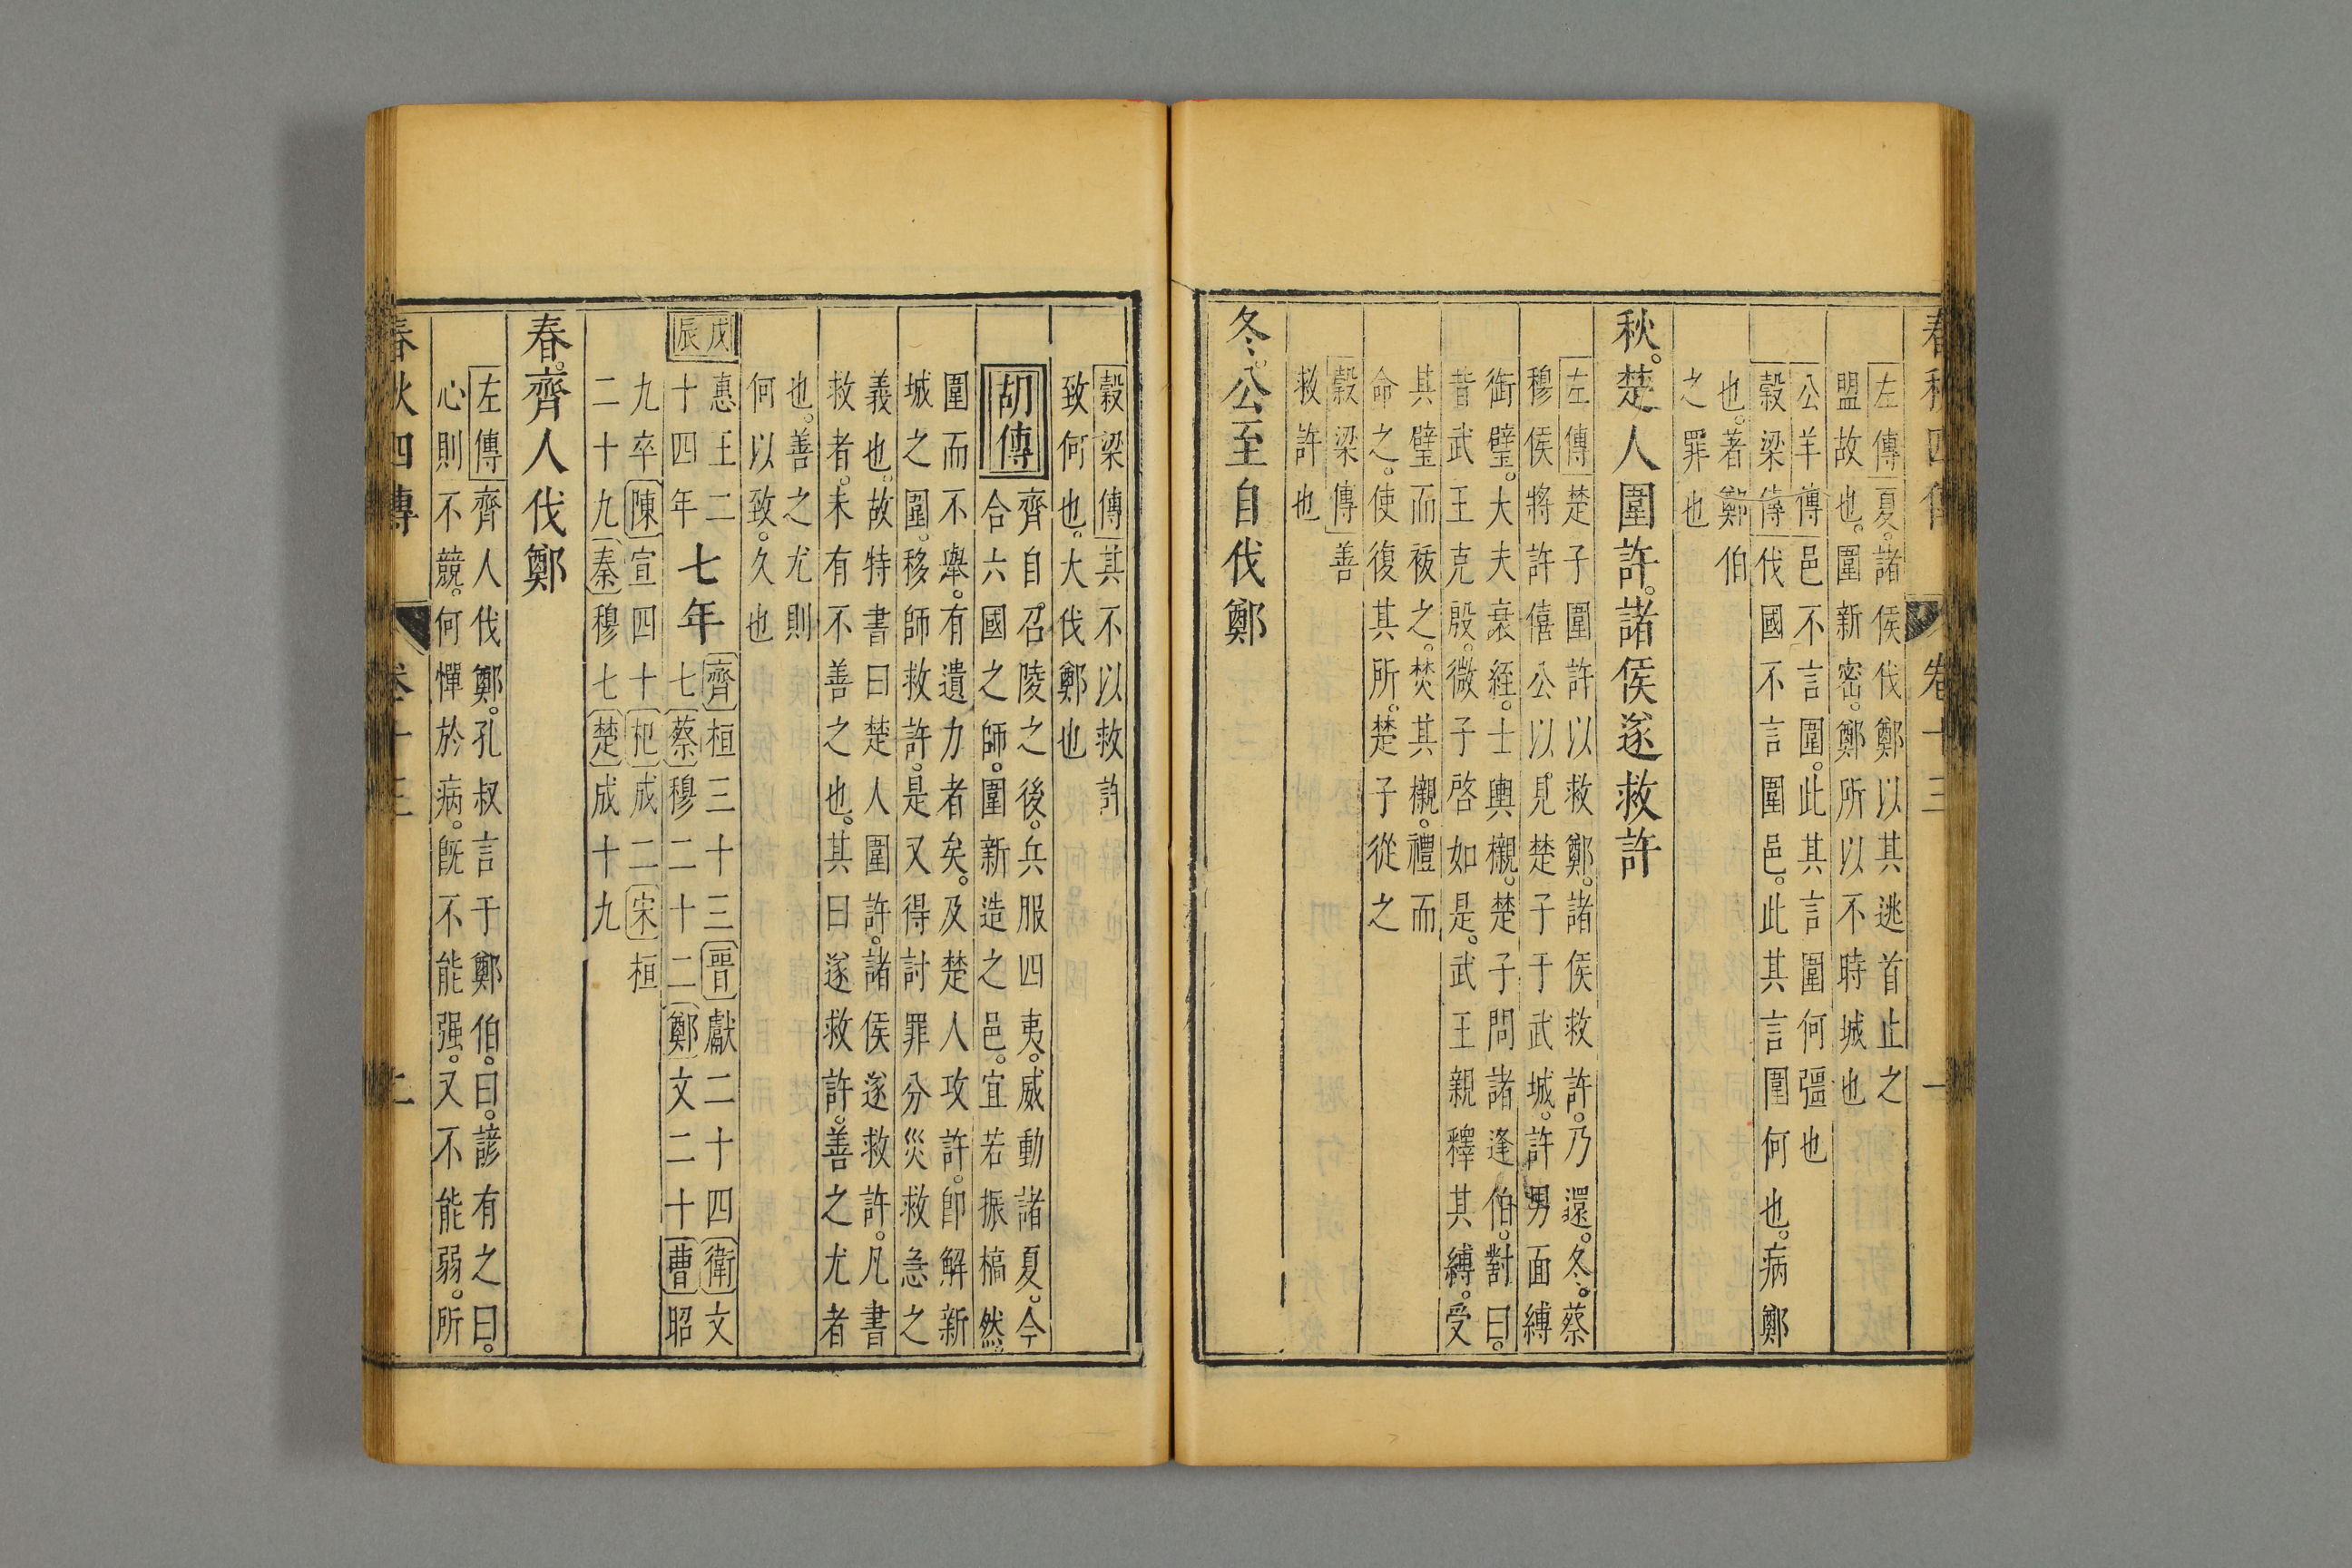 春秋四傳 卷十三 一
左傳夏。諸侯伐鄭以其逃首止之
盟故也。圍新密。鄭所以不時城也
公羊傳邑不言圍。此其言圍何彊也
穀梁傳伐國不言圍邑。此其言圍何也。病鄭
也。著鄭伯
之罪也
秋。楚人圍許。諸侯遂救許
左傳楚子圍許以救鄭。諸侯救許。乃還。冬。蔡
穆侯將許僖公以見楚子于武城。許男面縛
銜璧。大夫衰絰。士輿櫬。楚子問諸逢伯。對曰。
昔武王克殷。微子啓如是。武王親釋其縛。受
其璧而祓之。焚其櫬。禮而
命之。使復其所。楚子從之
穀梁傳善
救許也
冬。公至自伐鄭
穀梁傳其不以救許
致何也。大伐鄭也
胡傳齊自召陵之後。兵服四夷。威動諸夏。今
合六國之師。圍新造之邑。宜若振槁然
圍而不舉。有遺力者矣。及楚人攻許。卽解新
城之圍。移師救許。是又得討罪分災救急之
義也。故特書曰楚人圍許。諸侯遂救許。凡書
救者。未有不善之也。其曰遂救許。善之尤者
也。善之尤則
何以致。久也
戊辰
惠王二十四年
七年
齊桓三十三晉獻二十四衛文
七蔡穆二十二鄭文二十曹昭
九卒陳宣四十杞成二宋桓
二十九秦穆七楚成十九
春。齊人伐鄭
左傳齊人伐鄭。孔叔言于鄭伯。曰。諺有之曰。
心則不競。何憚於病。旣不能强。又不能弱。所
春秋四傳 卷十三 二